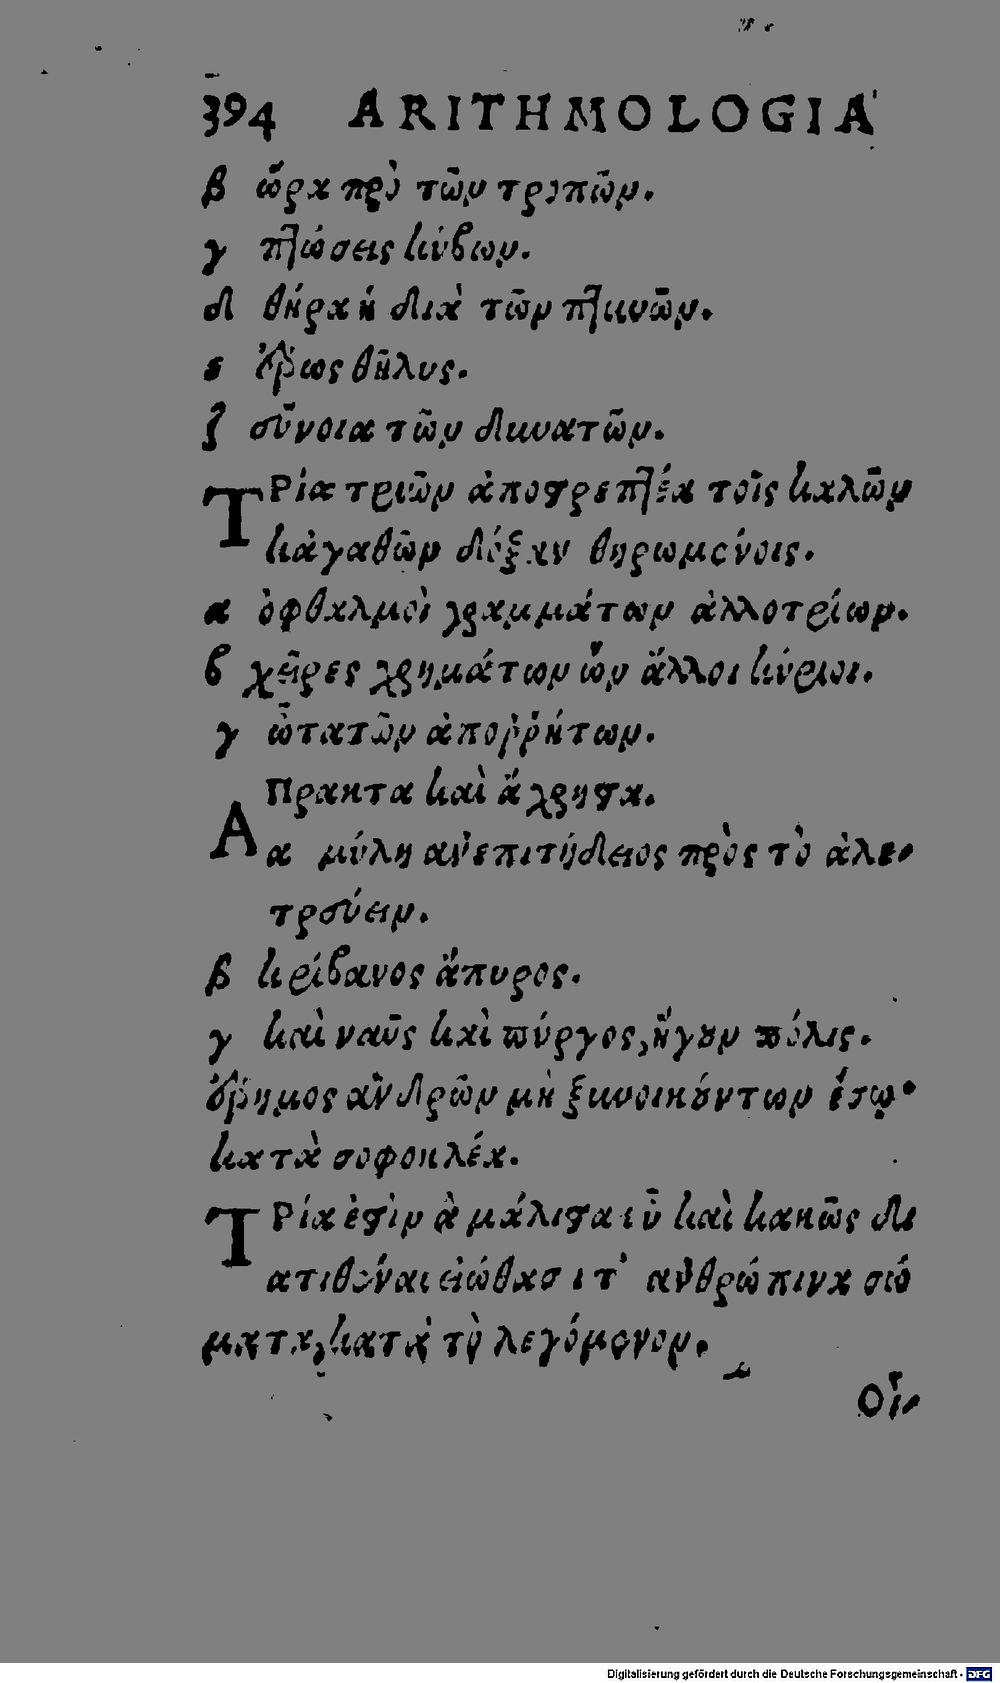 394 ARITHMOLOGIA
β ὥρα πρὸ τῶν τροπῶν.
γ πτώσεις κύβων.
δ θήρα ἡ διὰ τῶν πτηνῶν.
ε ἔρως θῆλυς.
ζ εὔνοια τῶν δυνατῶν.
ΤΡία τριῶν ἀποστρεπτέα τοῖς καλῶν
κἀγαθῶν δόξαν θηρωμένοις.
α ὀφθαλμοὶ γραμμάτων ἀλλοτρίων.
β χεῖρες χρημάτων ὧν ἄλλοι κύριοι.
γ ὦτα τῶν ἀποῤῥήτων.
ΑΠρακτα καὶ ἄχρηστα.
α μύλη ἀνεπιτήδειος πρὸς τὸ ἀλε-
τρεύειν.
β κρίβανος ἄπυρος.
γ καὶ ναῦς καὶ πύργος, ἤγουν πόλις.
ἔρημος ἀνδρῶν μὴ ξυνοικούντων ἔσω·
κατὰ σοφοκλέα.
ΤΡία ἐστὶν ἃ μάλιστα εὖ καὶ κακῶς δι
ατιθέναι εἰώθασι τ' ἀνθρώπινα σώ
ματα, κατὰ τὸ λεγόμενον.
Οἶ-
Digitalisierung gefördert durch die Deutsche Forschungsgemeinschaft - DFG